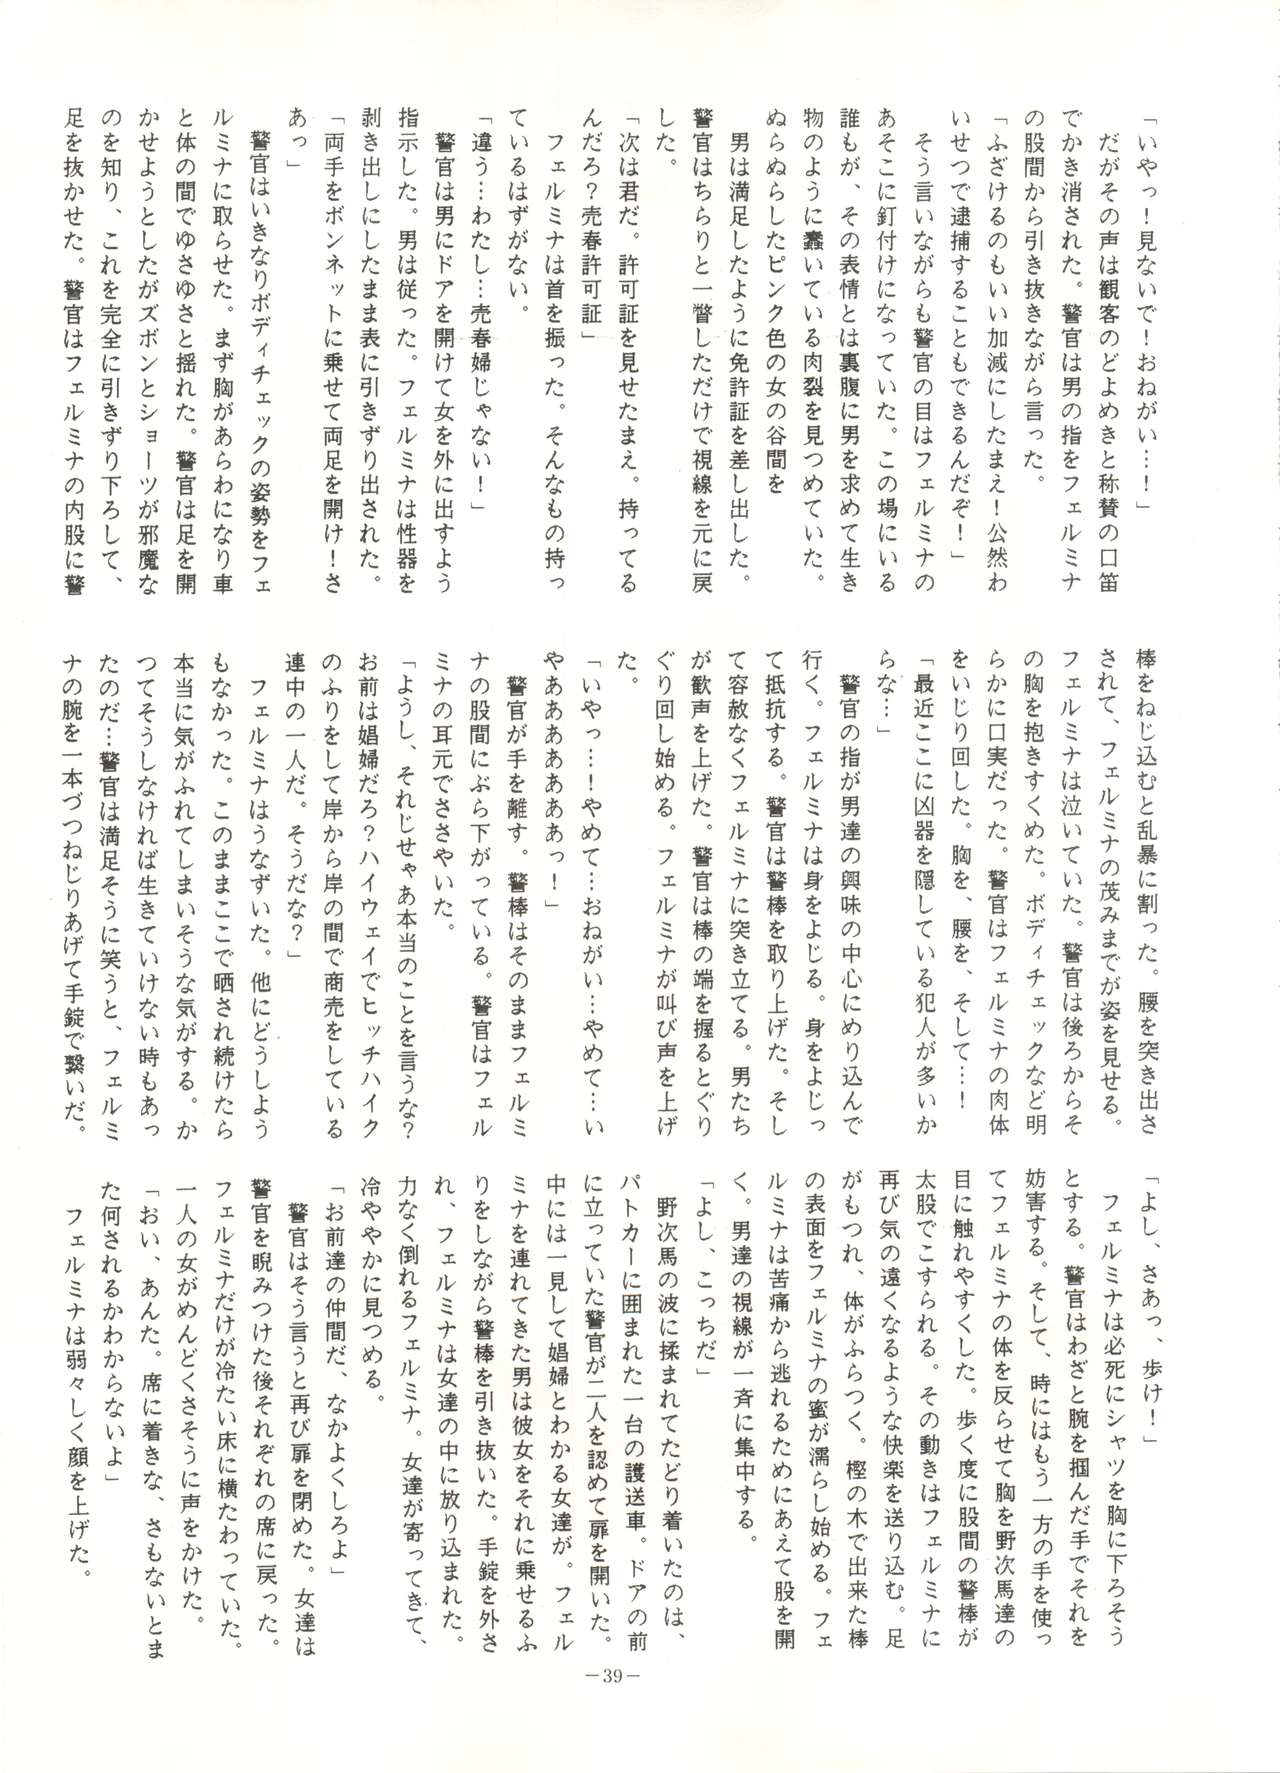 「いやっ！見ないで！おねがい…！」
だがその声は観客のどよめきと称賛の口笛
でかき消された。警官は男の指をフェルミナ
の股間から引き抜きながら言った。
「ふざけるのもいい加減にしたまえ！公然わ
いせつで逮捕することもできるんだぞ！」
そう言いながらも警官の目はフェルミナの
あそこに釘付けになっていた。この場にいる
誰もが、その表情とは裏腹に男を求めて生き
物のように蠢いている肉裂を見つめていた。
ぬらぬらしたピンク色の女の谷間を
男は満足したように免許証を差し出した。
警官はちらりと一瞥しただけで視線を元に戻
した。
「次は君だ。許可証を見せたまえ。持ってる
んだろ？売春許可証」
フェルミナは首を振った。そんなもの持っ
ているはずがない。
「違う…わたし…売春婦じゃない！」
警官は男にドアを開けて女を外に出すよう
指示した。男は従った。フェルミナは性器を
剥き出しにしたまま表に引きずり出された。
「両手をボンネットに乗せて両足を開け！さ
あっ」
警官はいきなりボディチェックの姿勢をフェ
ルミナに取らせた。まず胸があらわになり車
と体の間でゆさゆさと揺れた。警官は足を開
かせようとしたがズボンとショーツが邪魔な
のを知り、これを完全に引きずり下ろして、
足を抜かせた。警官はフェルミナの内股に警
棒をねじ込むと乱暴に割った。腰を突き出さ
されて、フェルミナの茂みまでが姿を見せる。
フェルミナは泣いていた。警官は後ろからそ
の胸を抱きすくめた。ボディチェックなど明
らかに口実だった。警官はフェルミナの肉体
をいじり回した。胸を、腰を、そして…！
「最近ここに凶器を隠している犯人が多いか
らな…」
警官の指が男達の興味の中心にめり込んで
行く。フェルミナは身をよじる。身をよじっ
て抵抗する。警官は警棒を取り上げた。そし
て容赦なくフェルミナに突き立てる。男たち
が歓声を上げた。警官は棒の端を握るとぐり
ぐり回し始める。フェルミナが叫び声を上げ
た。
「いやっ…！やめて…おねがい…やめて…い
やああああああっ！」
警官が手を離す。警棒はそのままフェルミ
ナの股間にぶら下がっている。警官はフェル
ミナの耳元でささやいた。
「ようし、それじせゃあ本当のことを言うな？
お前は娼婦だろ？ハイウェイでヒッチハイク
のふりをして岸から岸の間で商売をしている
連中の一人だ。そうだな？」
フェルミナはうなずいた。他にどうしよう
もなかった。このままここで晒され続けたら
本当に気がふれてしまいそうな気がする。か
つてそうしなければ生きていけない時もあっ
たのだ…警官は満足そうに笑うと、フェルミ
ナの腕を一本づつねじりあげて手錠で繋いだ。
「よし、さあっ、歩け！」
フェルミナは必死にシャツを胸に下ろそう
とする。警官はわざと腕を掴んだ手でそれを
妨害する。そして、時にはもう一方の手を使っ
てフェルミナの体を反らせて胸を野次馬達の
目に触れやすくした。歩く度に股間の警棒が
太股でこすられる。その動きはフェルミナに
再び気の遠くなるような快楽を送り込む。足
がもつれ、体がふらつく。樫の木で出来た棒
の表面をフェルミナの蜜が濡らし始める。フェ
ルミナは苦痛から逃れるためにあえて股を開
く。男達の視線が一斉に集中する。
「よし、こっちだ」
野次馬の波に揉まれてたどり着いたのは、
パトカーに囲まれた一台の護送車。ドアの前
に立っていた警官が二人を認めて扉を開いた。
中には一見して娼婦とわかる女達が。フェル
ミナを連れてきた男は彼女をそれに乗せるふ
りをしながら警棒を引き抜いた。手錠を外さ
れ、フェルミナは女達の中に放り込まれた。
力なく倒れるフェルミナ。女達が寄ってきて、
冷ややかに見つめる。
「お前達の仲間だ、なかよくしろよ」
警官はそう言うと再び扉を閉めた。女達は
警官を睨みつけた後それぞれの席に戻った。
フェルミナだけが冷たい床に横たわっていた。
一人の女がめんどくさそうに声をかけた。
「おい、あんた。席に着きな、さもないとま
た何されるかわからないよ」
フェルミナは弱々しく顔を上げた。
－39－